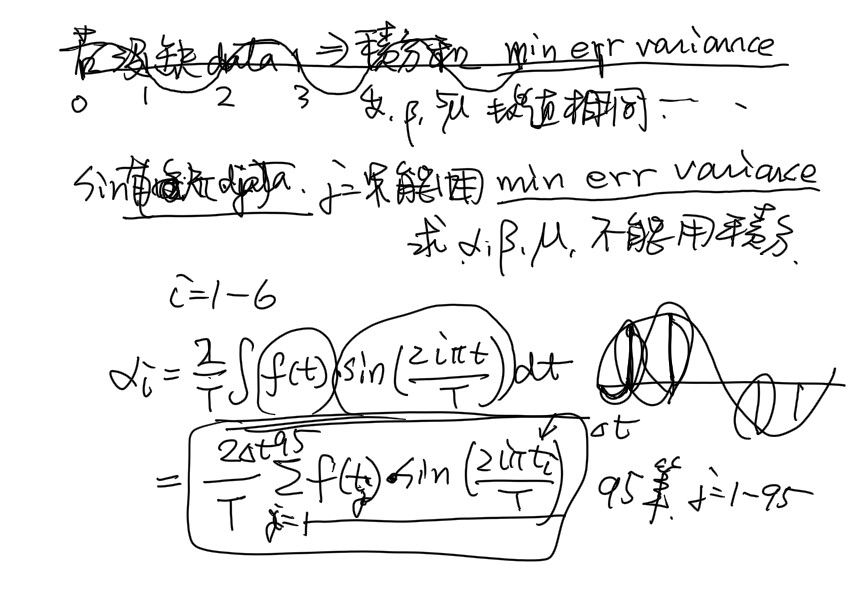 若沒缺data ⇒ 積分和 min err variance
0 1 2 3 α, β, μ 數值相同.
sin 有缺data. 只能用 min err variance
求 α, β, μ, 不能用積分.
i=1-6
αi = 2/T ∫ f(t) sin(2iπt/T) dt
Δt
= 2Δt/T Σ_{j=1}^{95} f(tj) sin(2iπti/T)
95筆 j=1-95